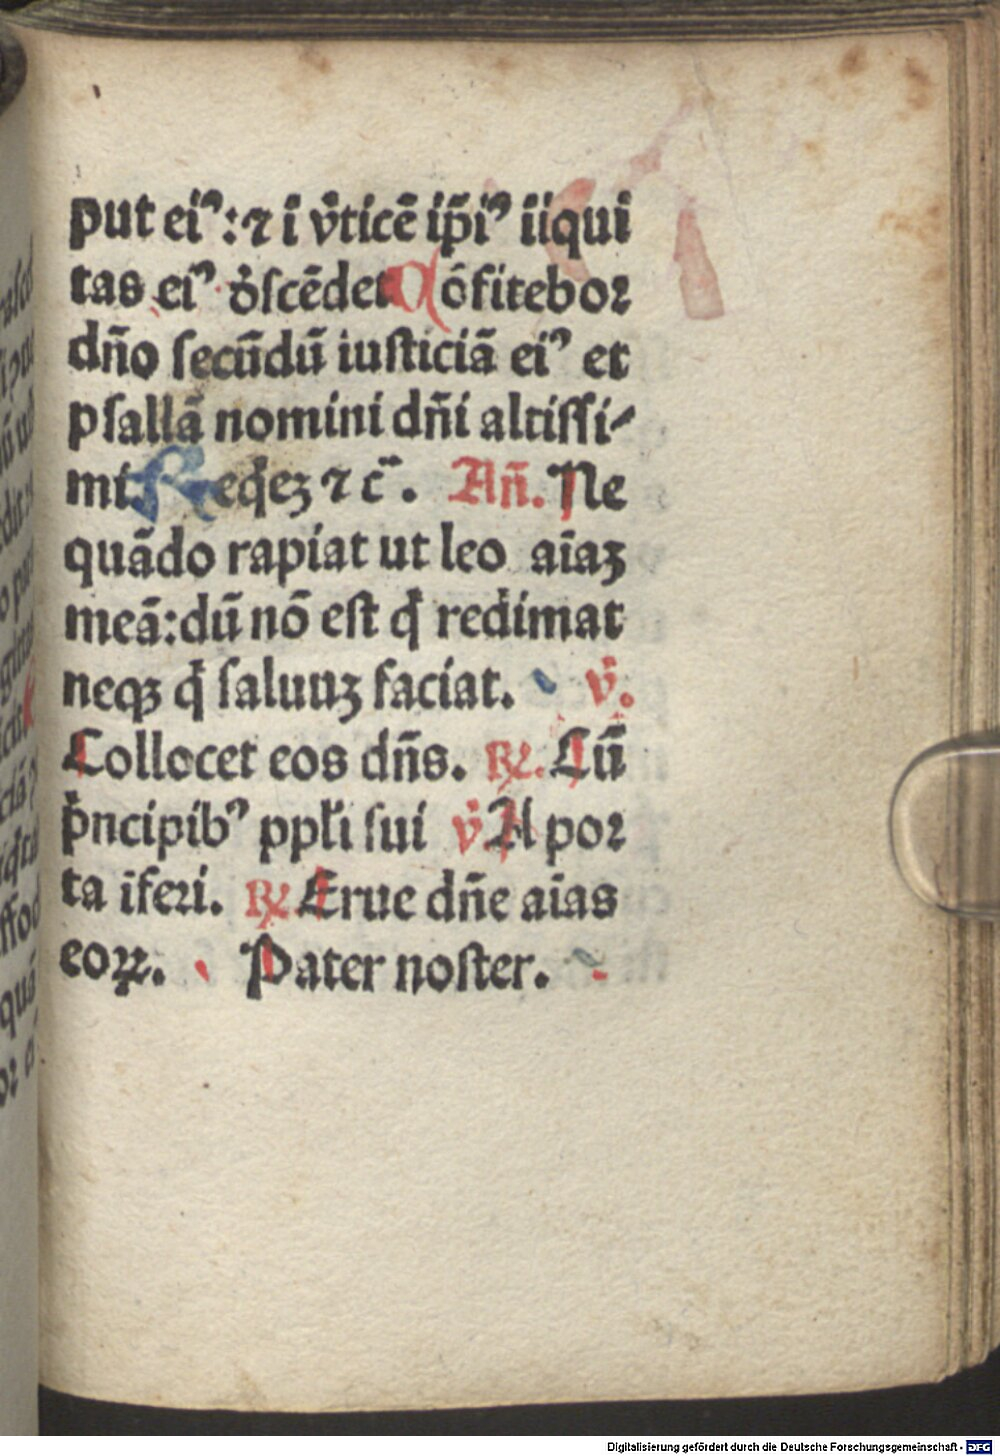 put eiꝰ: ⁊ i v̾ticē ip̄iꝰ iiqui
tas eiꝰ d̾ſcēdet Cōfitebor
dn̄o ſecūdū iuſticiā eiꝰ et
pſallā nomini dn̄i altiſſi⸗
mi. Reqͥeꝫ ⁊ c̄. An̄. Ne
quādo rapiat ut leo aīaꝫ
meā: dū nō eſt qͥ redimat
neqꝫ qͥ ſaluuꝫ faciat. v̾.
Collocet eos dn̄s. ℟. Cū
pͥncipibꝰ ppl̄i ſui v̾. A por
ta īferi. ℟. Erue dn̄e aīas
eoꝝ. Pater noſter.
Digitalisierung gefördert durch die Deutsche Forschungsgemeinschaft - DFG